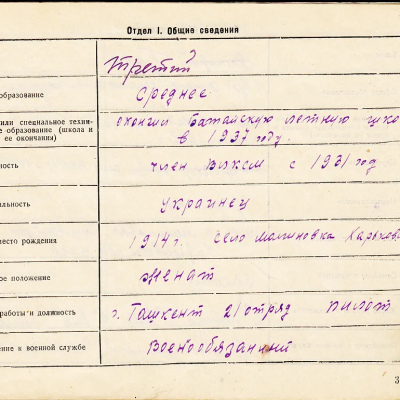 Отдел I. Общие сведения
Третий
образование
Среднее
или специальное техни-
е образование (школа и
ее окончания)
окончил Батайскую летную шко
в 1937 году.
ность
член ВЛКСМ с 1931 год
альность
Украинец
место рождения
1914 г. село Малиновка Харьков
ое положение
Женат
работы и должность
г. Ташкент 21 отряд пилот
ение к военной службе
Военообязанный
3